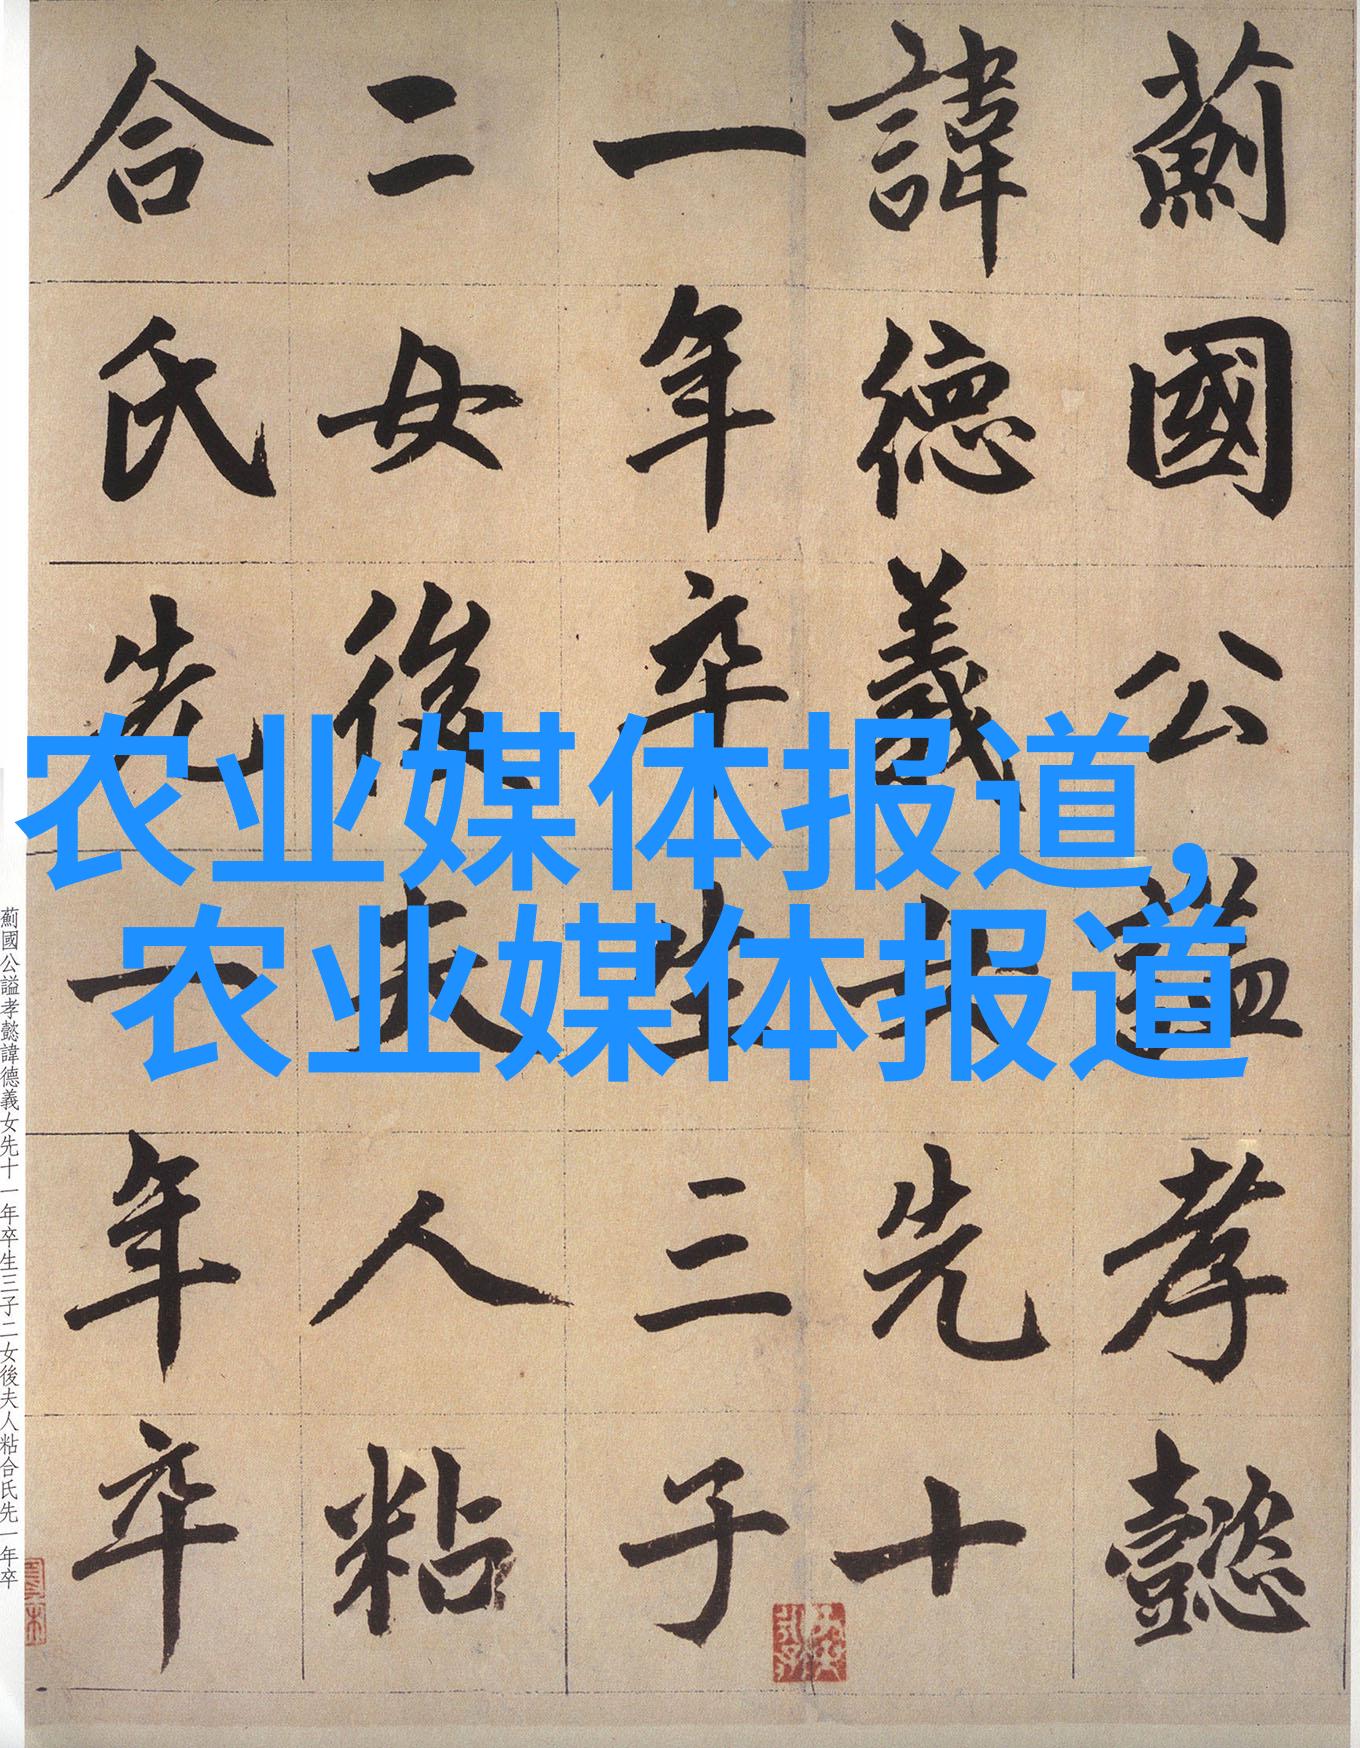 薊國公謚孝懿
諱德義女先十
一年卒生三子
二女後夫人粘
合氏先一年卒
农业媒体报道,
农业媒体报道
薊國公謚孝懿諱德義女先十一年卒生三子二女後夫人粘合氏先一年卒